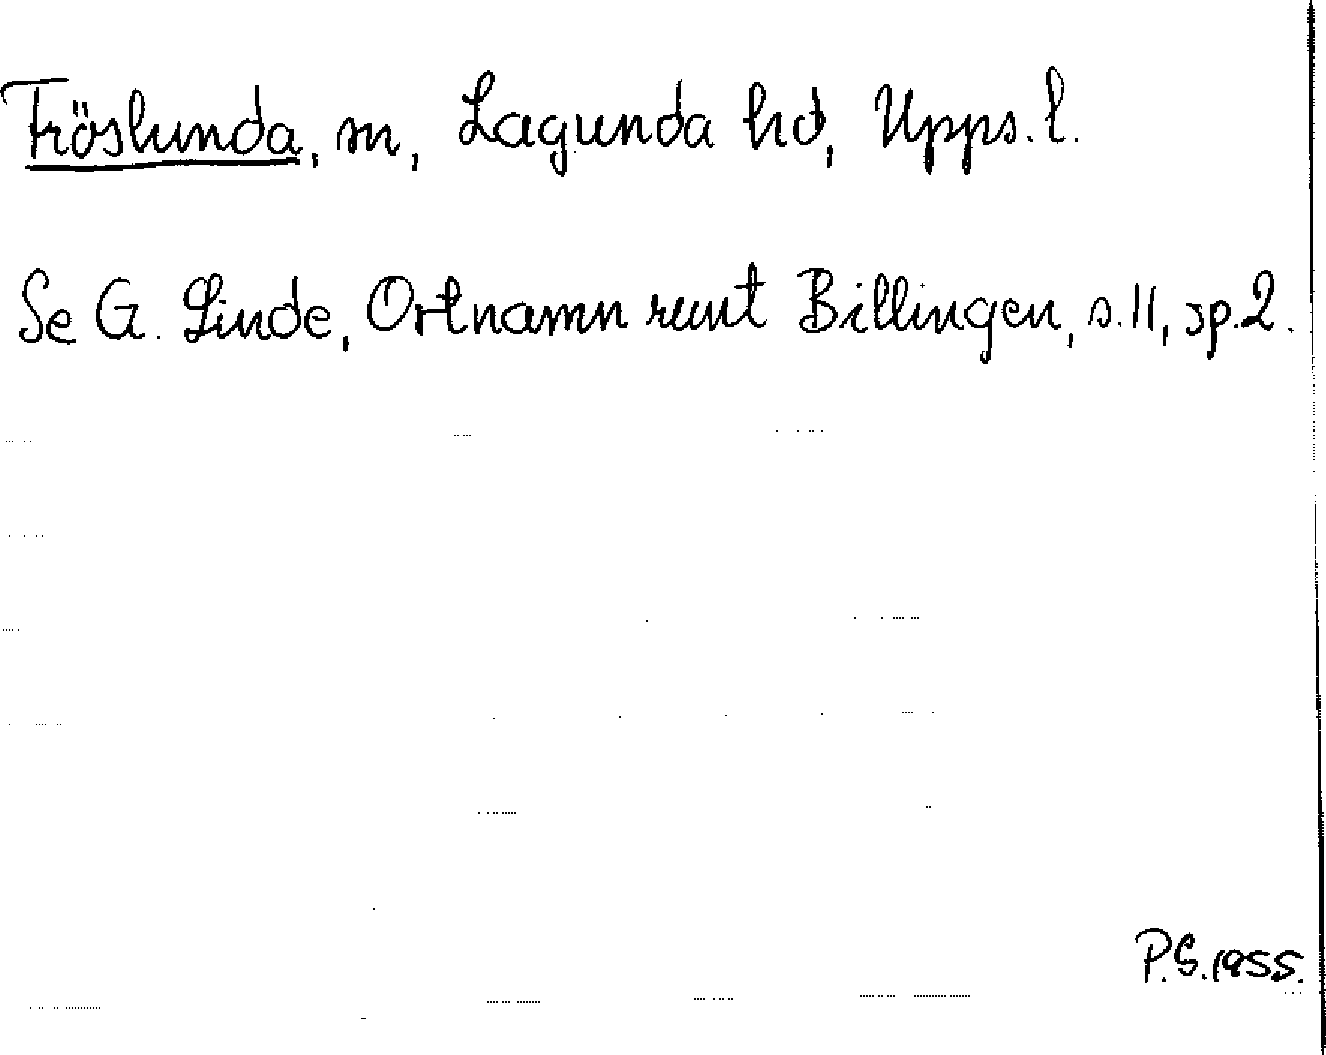 Fröslunda, sn, Lagunda hd, Upps. l.
Se G. Linde, Ortnamn runt Billingen, s. 11, sp. 2.
P.S. 1955.